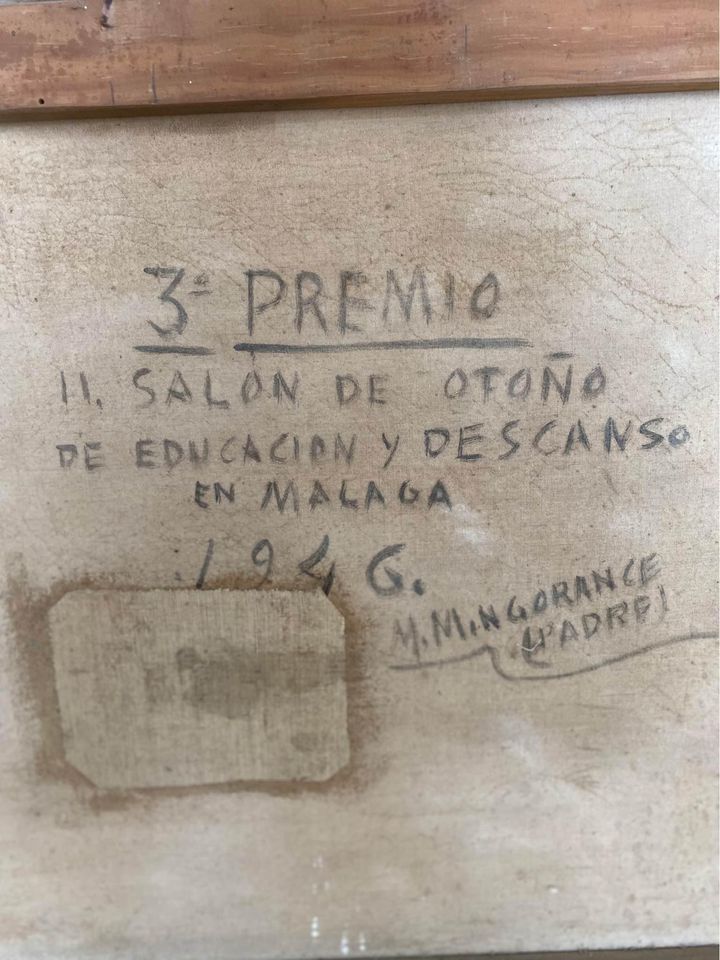 3º PREMIO
II. SALÓN DE OTOÑO
DE EDUCACION Y DESCANSO
EN MALAGA
.1946.
M. MINGORANCE
(PADRE)